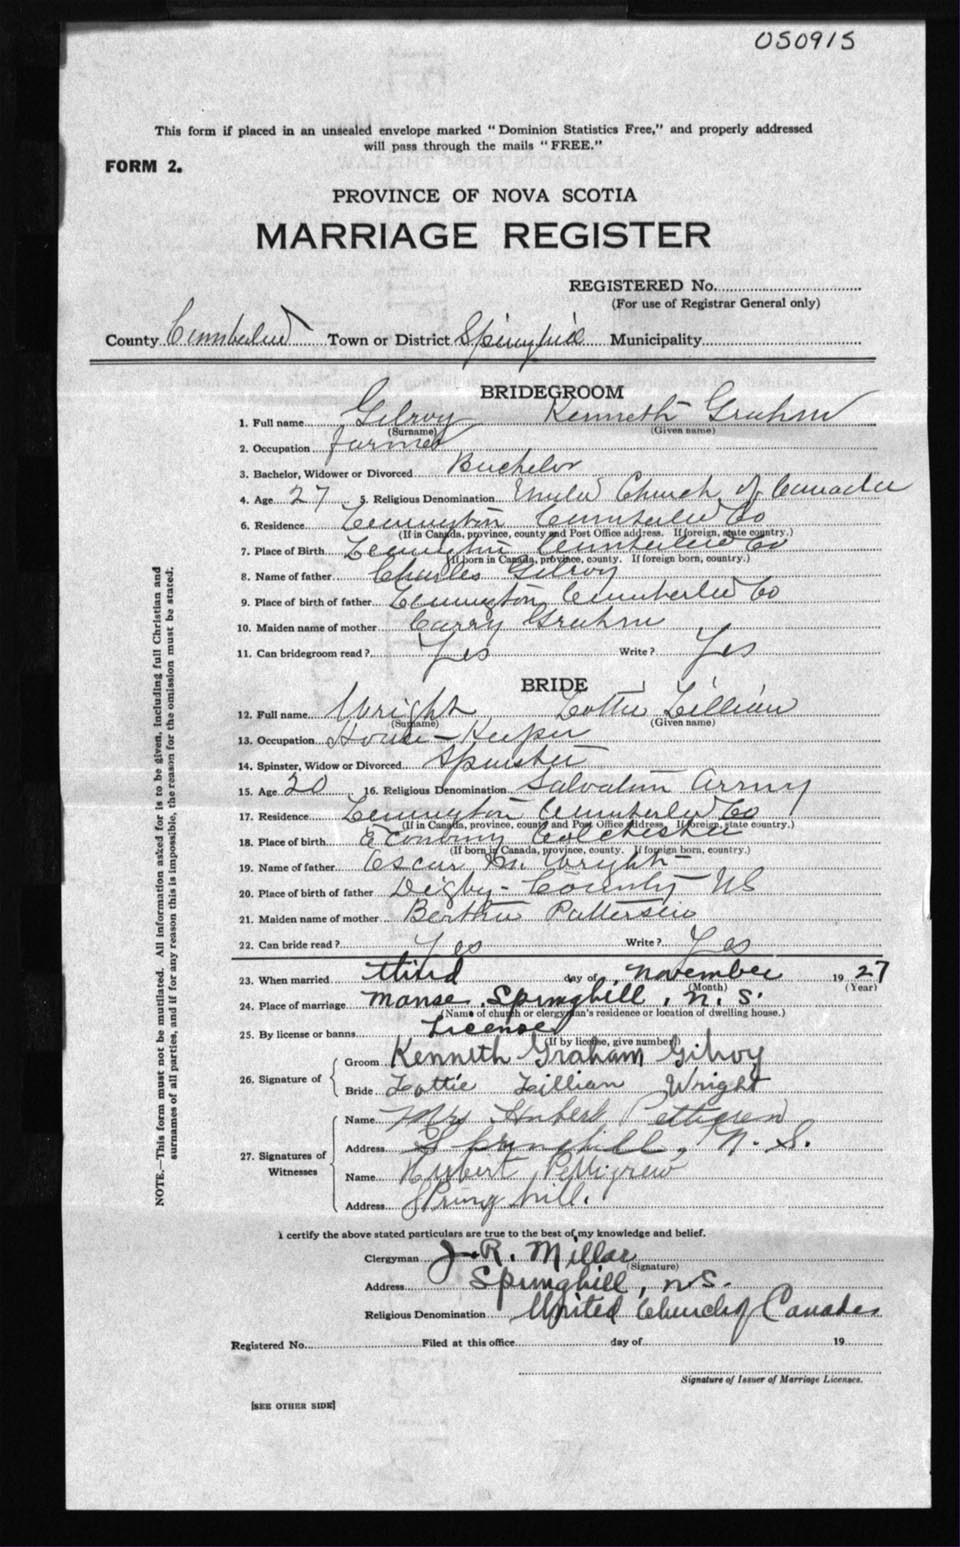 050915
This form if placed in an unsealed envelope marked "Dominion Statistics Free," and properly addressed
will pass through the mails "FREE."
FORM 2.
PROVINCE OF NOVA SCOTIA
MARRIAGE REGISTER
REGISTERED No.
(For use of Registrar General only)
County Cumberland Town or District Springhill Municipality
BRIDEGROOM
1. Full name Gilroy Kenneth Graham
(Surname) (Given name)
2. Occupation farmer
3. Bachelor, Widower or Divorced Bachelor
4. Age 27 5. Religious Denomination United Church of Canada
6. Residence Leamington Cumberland Co
(If in Canada, province, county and Post Office address. If foreign, state country.)
7. Place of Birth Leamington Cumberland Co
(If born in Canada, province, county. If foreign born, country.)
8. Name of father Charles Gilroy
9. Place of birth of father Leamington Cumberland Co
10. Maiden name of mother Carry Graham
11. Can bridegroom read? Yes Write? Yes
BRIDE
12. Full name Wright Lottie Lillian
(Surname) (Given name)
13. Occupation House-Keeper
14. Spinster, Widow or Divorced Spinster
15. Age 20 16. Religious Denomination Salvation Army
17. Residence Leamington Cumberland Co
(If in Canada, province, county and Post Office address. If foreign, state country.)
18. Place of birth Economy Colchester
(If born in Canada, province, county. If foreign born, country.)
19. Name of father Escar M. Wright
20. Place of birth of father Digby-County NS
21. Maiden name of mother Bertha Patterson
22. Can bride read? Yes Write? Yes
23. When married third day of november 1927
(Month) (Year)
24. Place of marriage manse, Springhill, n. s.
(Name of church or clergyman's residence or location of dwelling house.)
25. By license or banns License
(If by license, give number)
26. Signature of
Groom Kenneth Graham Gilroy
Bride Lottie Lillian Wright
27. Signatures of Witnesses
Name Mrs Hubert Pettigrew
Address Springhill, N. S.
Name Hubert Pettigrew
Address Spring hill.
I certify the above stated particulars are true to the best of my knowledge and belief.
Clergyman J. R. Millar
(Signature)
Address Springhill, n.s.
Religious Denomination United Church of Canada
Registered No. Filed at this office day of 19
Signature of Issuer of Marriage Licenses.
[SEE OTHER SIDE]
NOTE.—This form must not be mutilated. All information asked for is to be given, including full Christian and
surnames of all parties, and if for any reason this is impossible, the reason for the omission must be stated.